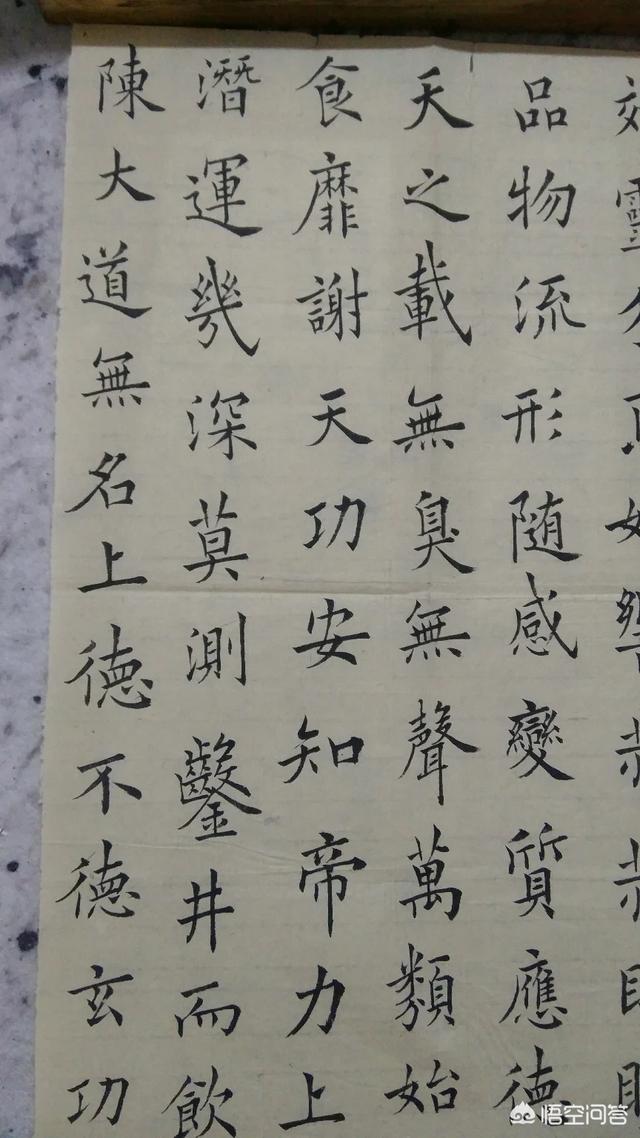 陳大道無名上德不德玄功
潛運幾深莫測鑿井而飲
食靡謝天功安知帝力上
天之載無臭無聲萬類始
品物流形随感變質應德
悟空问答